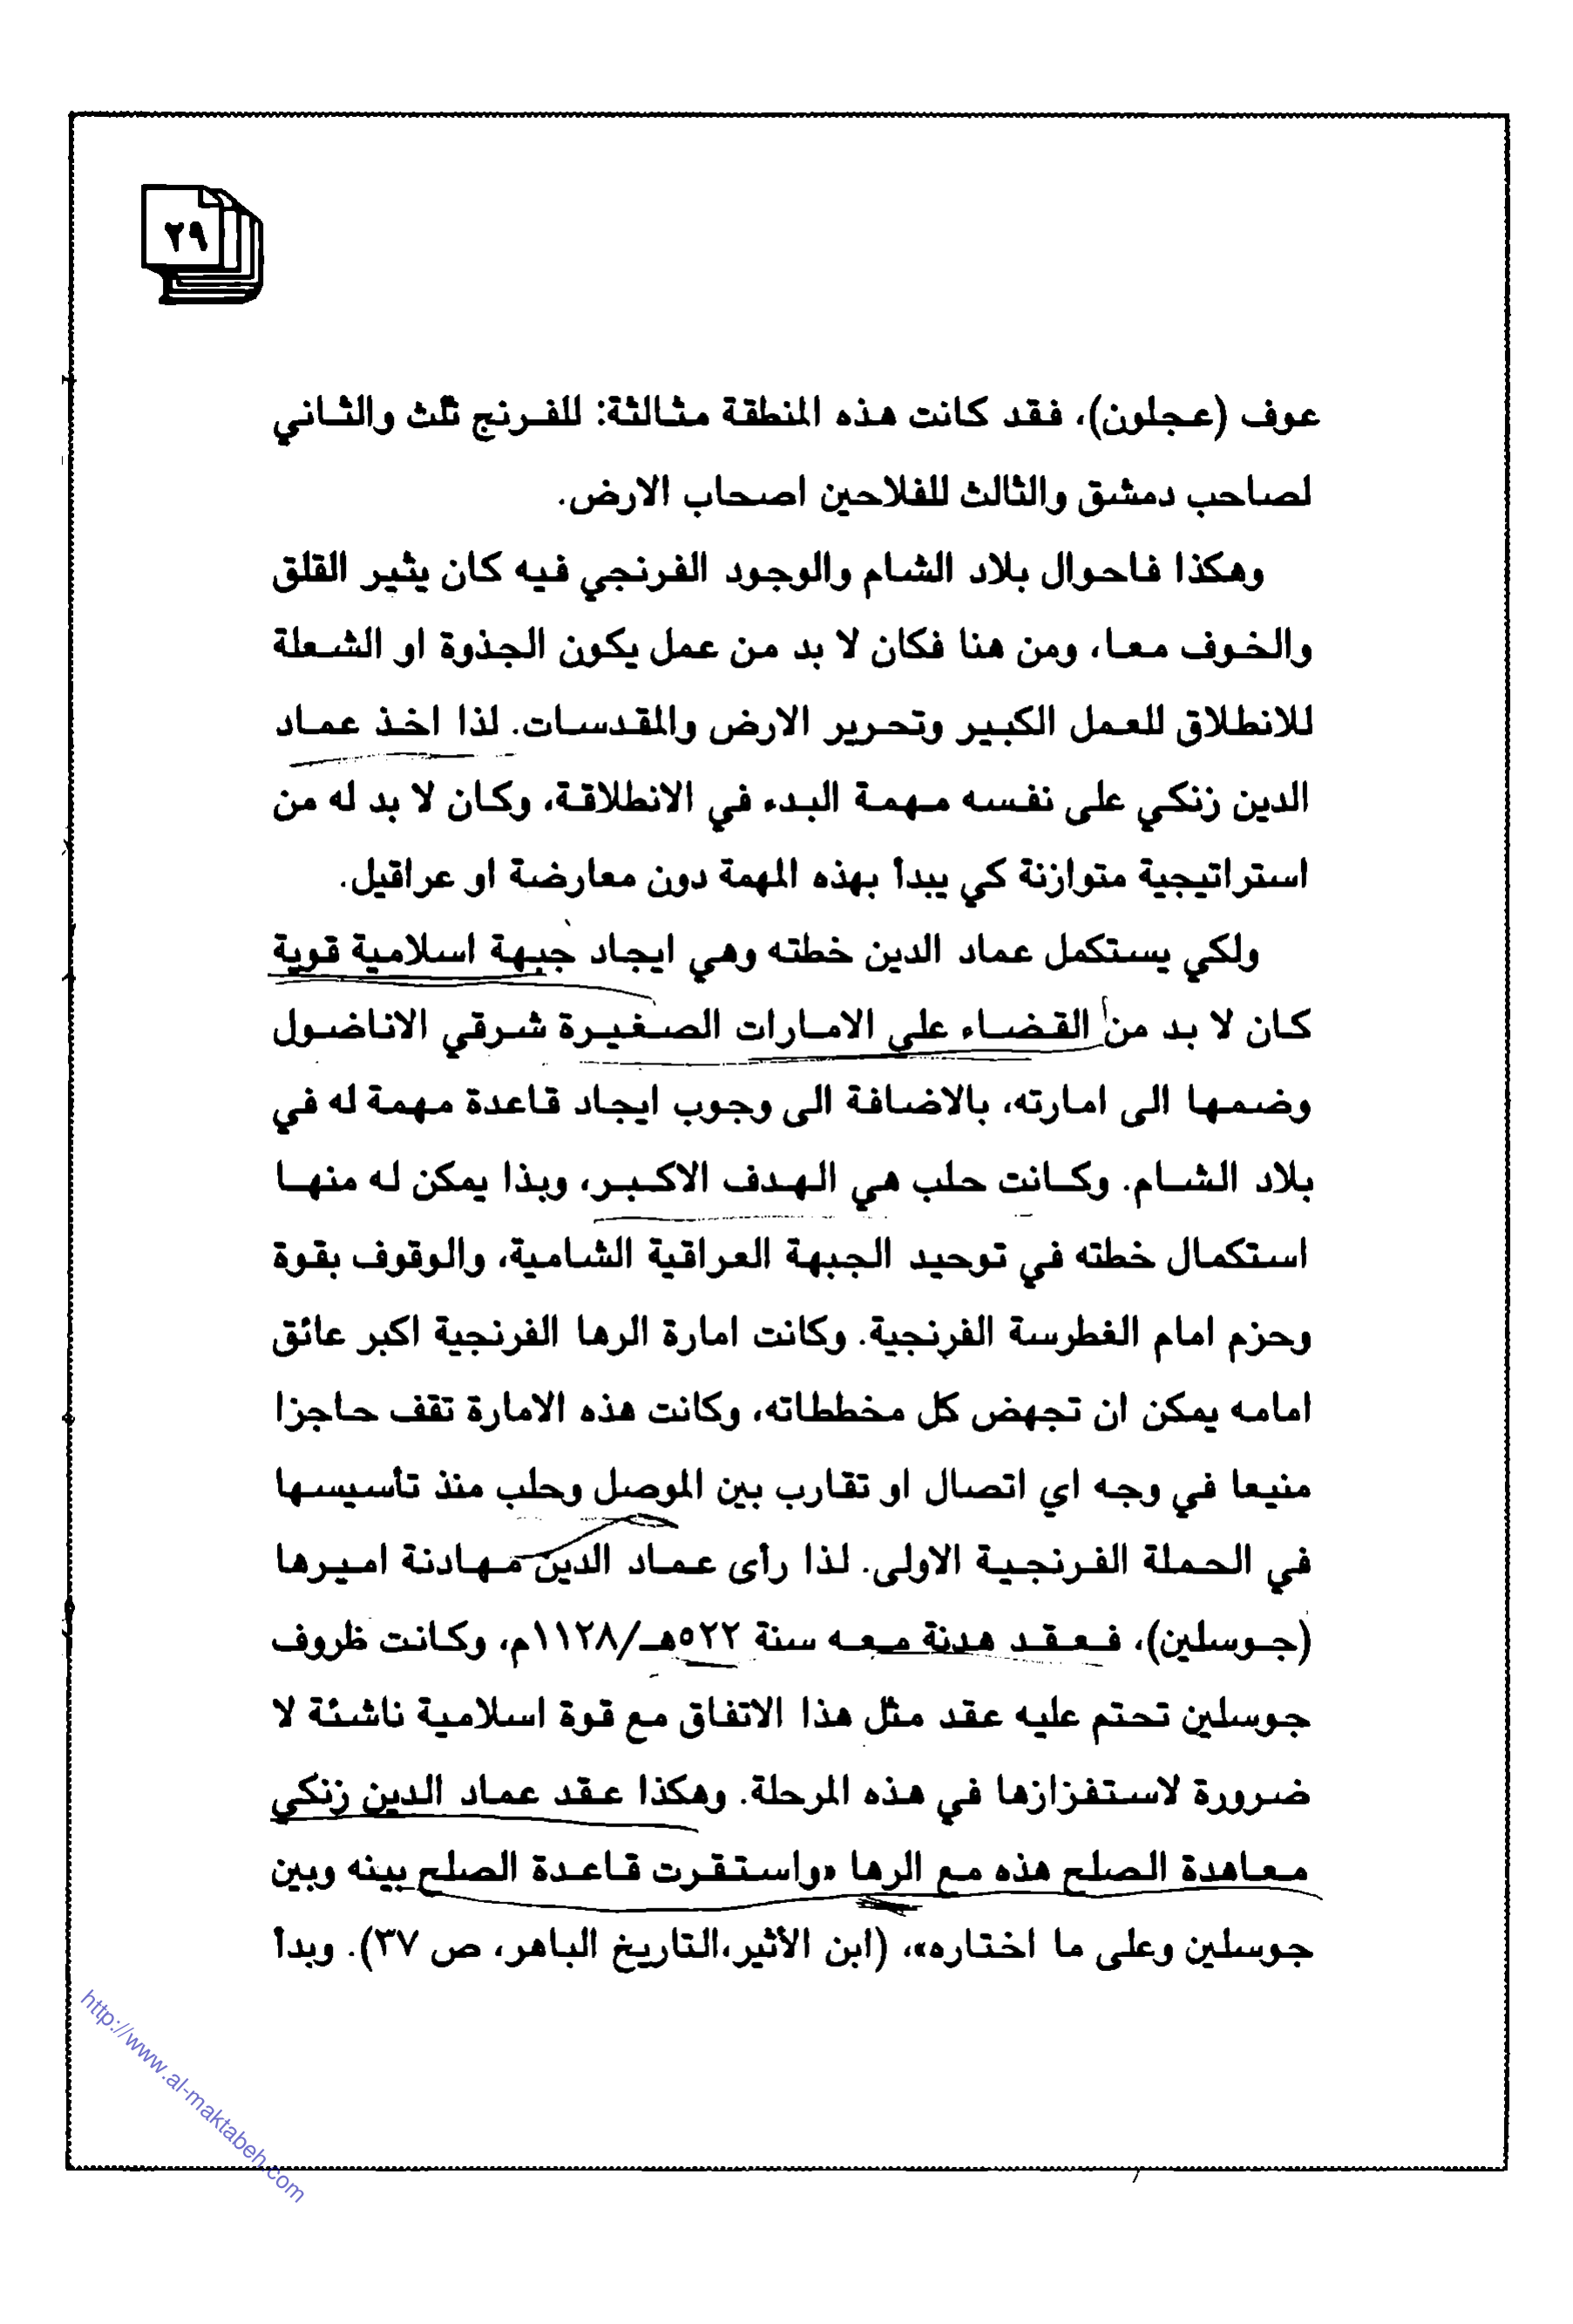 ٢٩
عوف (عجلون)، فقد كانت هذه المنطقة مثالثة: للفرنج ثلث والثاني
لصاحب دمشق والثالث للفلاحين اصحاب الارض.
وهكذا فاحوال بلاد الشام والوجود الفرنجي فيه كان يثير القلق
والخوف معا، ومن هنا فكان لا بد من عمل يكون الجذوة او الشعلة
للانطلاق للعمل الكبير وتحرير الارض والمقدسات. لذا اخذ عماد
الدين زنكي على نفسه مهمة البدء في الانطلاقة، وكان لا بد له من
استراتيجية متوازنة كي يبدأ بهذه المهمة دون معارضة او عراقيل.
ولكي يستكمل عماد الدين خطته وهي ايجاد جبهة اسلامية قوية
كان لا بد من القضاء على الامارات الصغيرة شرقي الاناضول
وضمها الى امارته، بالاضافة الى وجوب ايجاد قاعدة مهمة له في
بلاد الشام. وكانت حلب هي الهدف الاكبر، وبذا يمكن له منها
استكمال خطته في توحيد الجبهة العراقية الشامية، والوقوف بقوة
وحزم امام الغطرسة الفرنجية. وكانت امارة الرها الفرنجية اكبر عائق
امامه يمكن ان تجهض كل مخططاته، وكانت هذه الامارة تقف حاجزا
منيعا في وجه اي اتصال او تقارب بين الموصل وحلب منذ تأسيسها
في الحملة الفرنجية الاولى. لذا رأى عماد الدين مهادنة اميرها
(جوسلين)، فعقد هدنة معه سنة ٥٢٢هـ/١١٢٨م، وكانت ظروف
جوسلين تحتم عليه عقد مثل هذا الاتفاق مع قوة اسلامية ناشئة لا
ضرورة لاستفزازها في هذه المرحلة. وهكذا عقد عماد الدين زنكي
معاهدة الصلح هذه مع الرها «واستقرت قاعدة الصلح بينه وبين
جوسلين وعلى ما اختاره»، (ابن الأثير،التاريخ الباهر، ص ٣٧). وبدأ
http://www.al-maktabeh.com